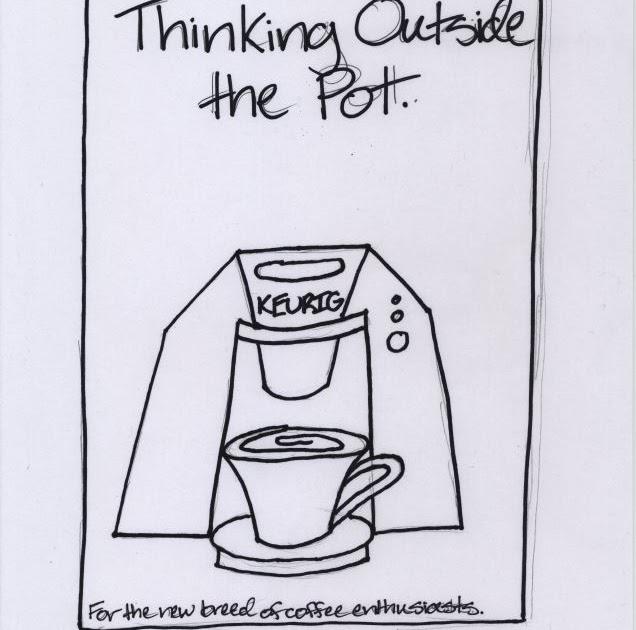 Thinking Outside
the Pot.
KEURIG
For the new breed of coffee enthusiasts.